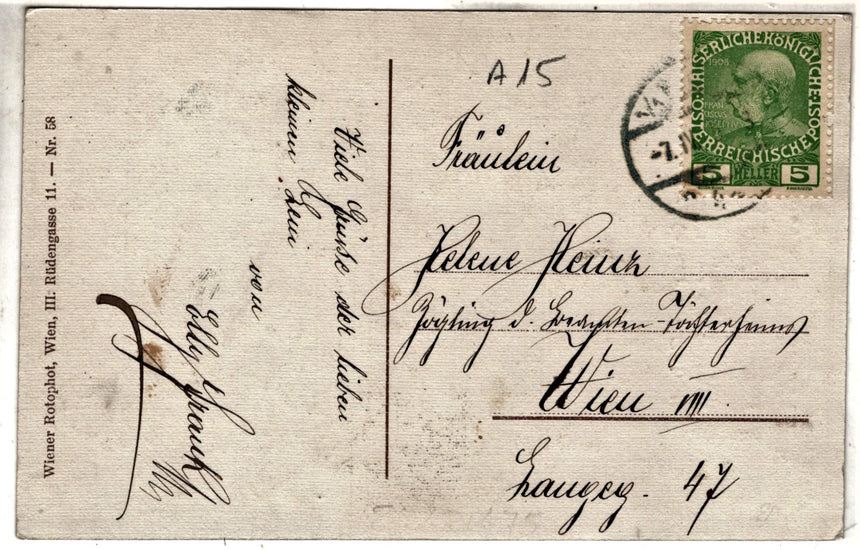 Wiener Rotophot, Wien, III. Rüdengasse 11. — Nr. 58
Viele Grüße der lieben
kleinen
von
Elly Frank
A 15
Fräulein
Helene Heinz
Zögling d. Beamten-Töchterheims
Wien VIII
Langeg. 47
KAISERLICHE KÖNIGLICHE
ÖSTERREICHISCHE
1908
5 HELLER 5